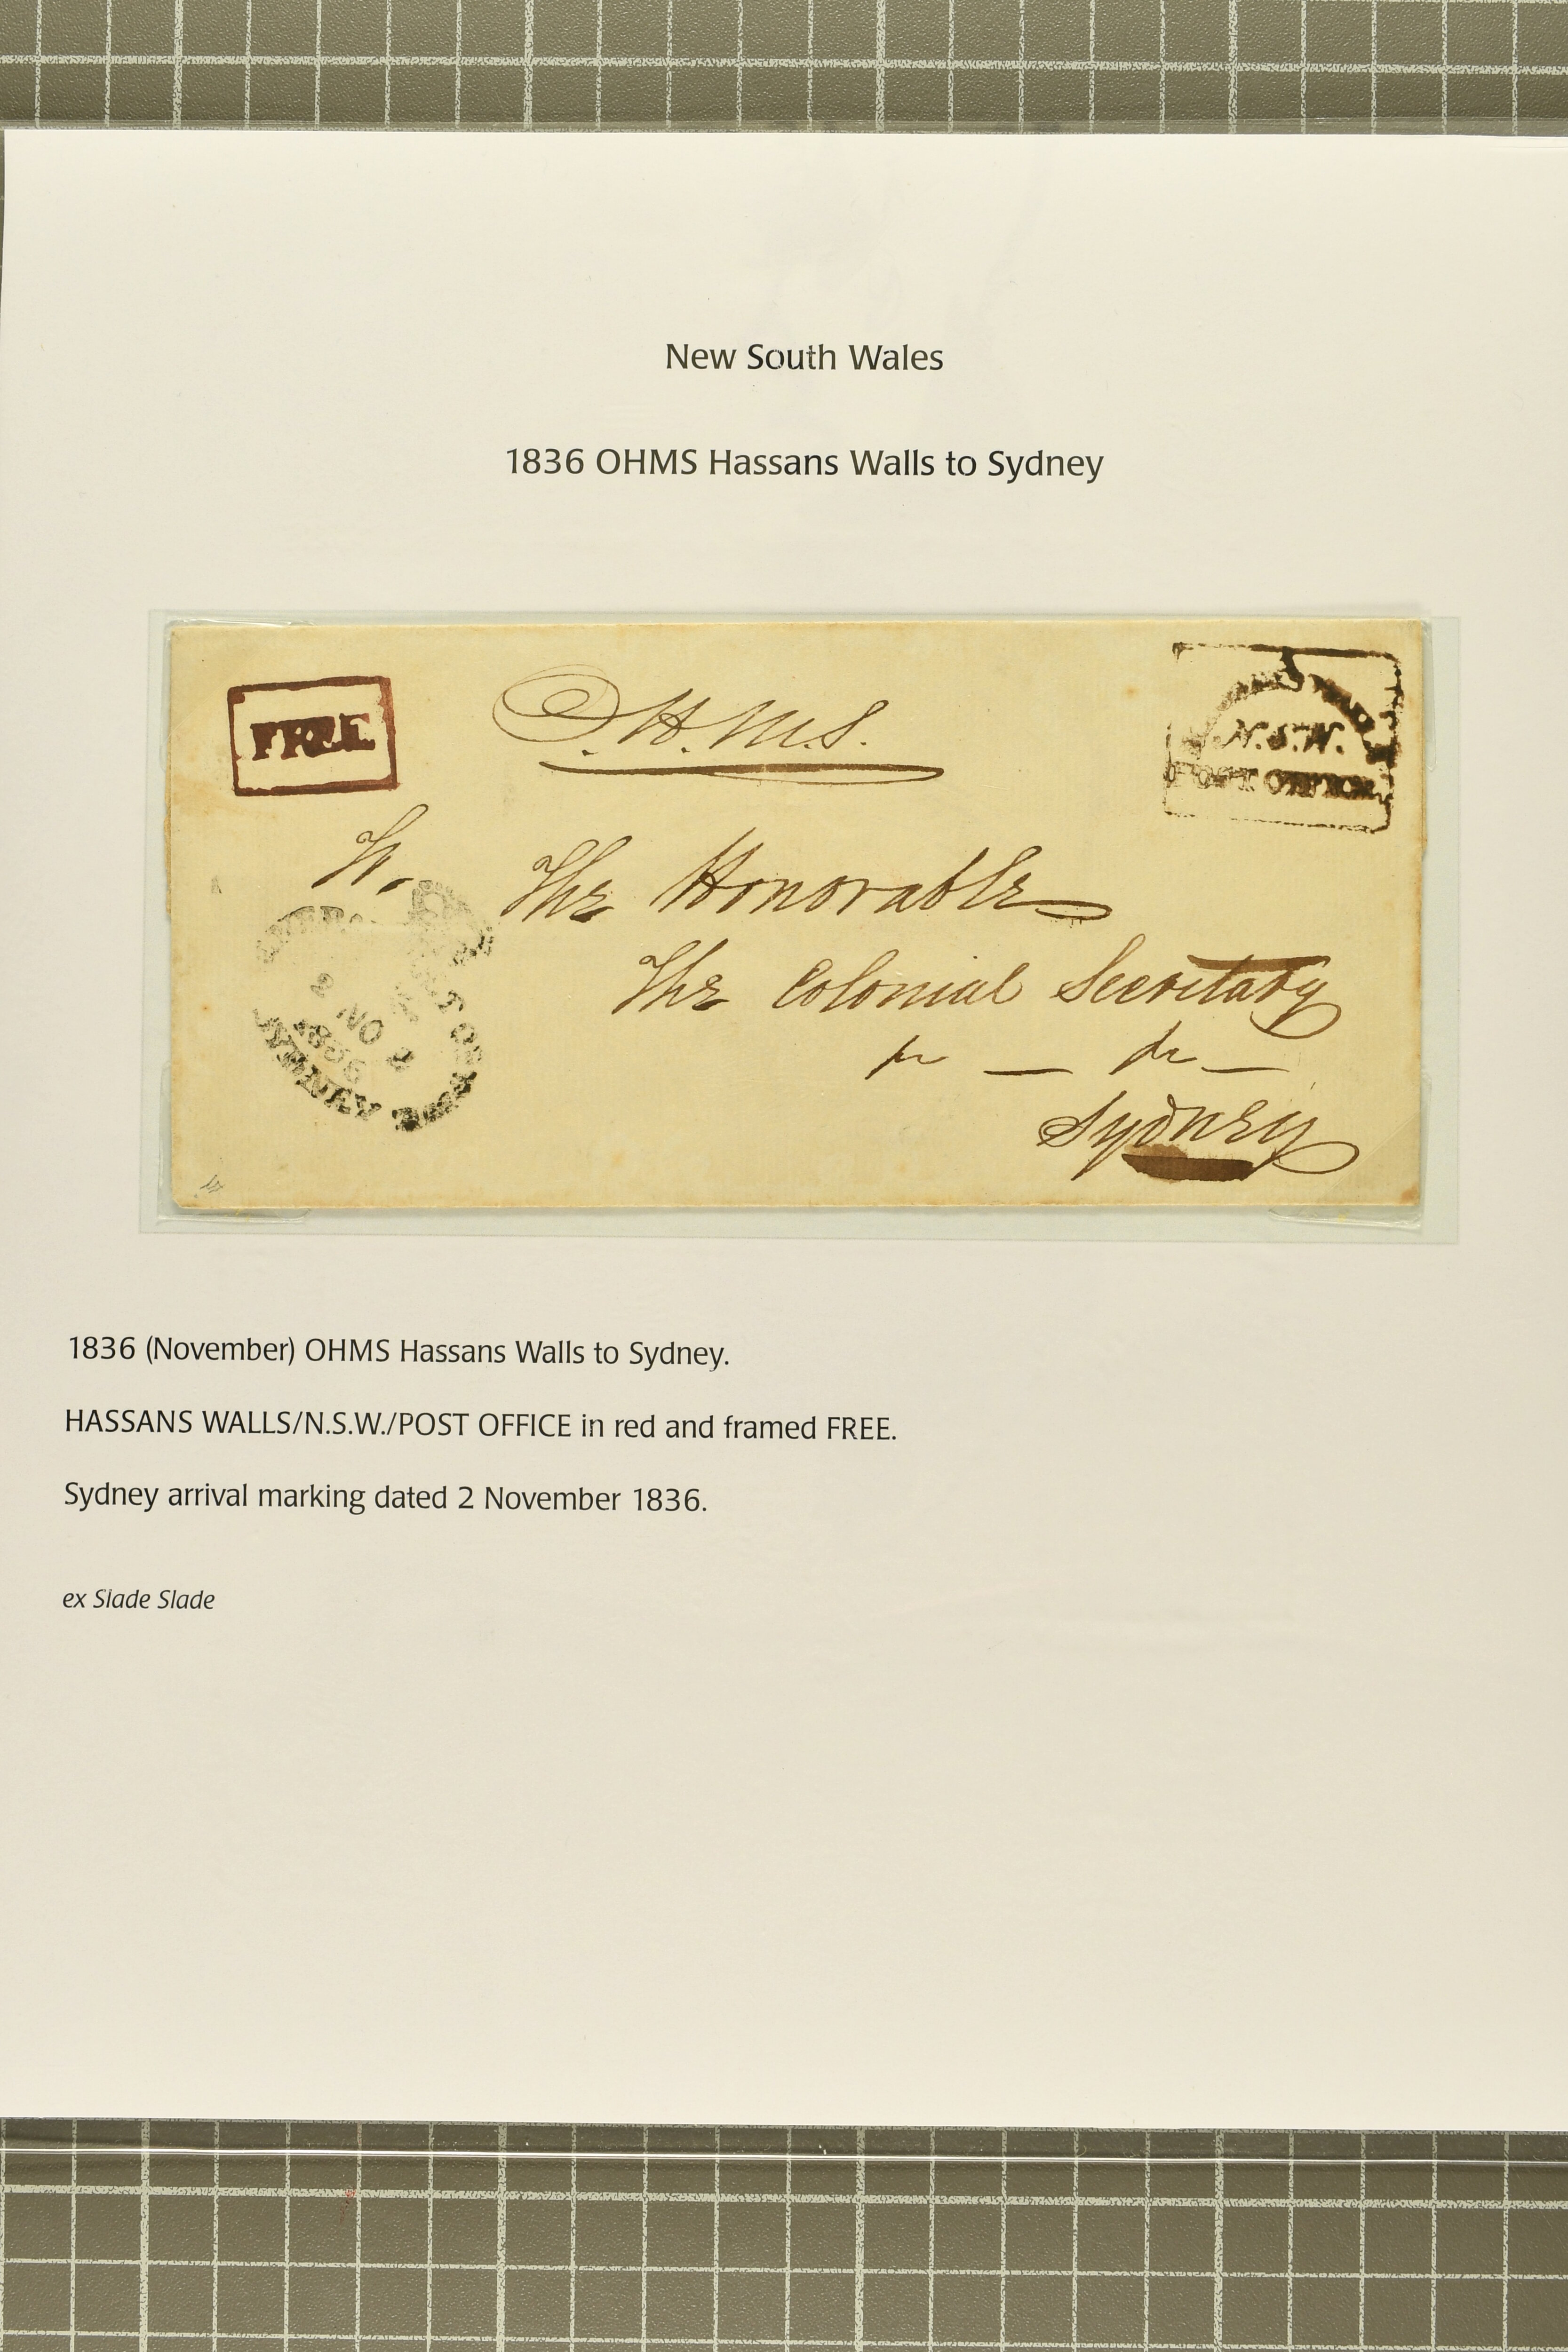 New South Wales
1836 OHMS Hassans Walls to Sydney
FREE
O.H.M.S.
N.S.W.
POST OFFICE
The Honorable
The Colonial Secretary
Sydney
2 NO 2
1836
SYDNEY
1836 (November) OHMS Hassans Walls to Sydney.
HASSANS WALLS/N.S.W./POST OFFICE in red and framed FREE.
Sydney arrival marking dated 2 November 1836.
ex Slade Slade